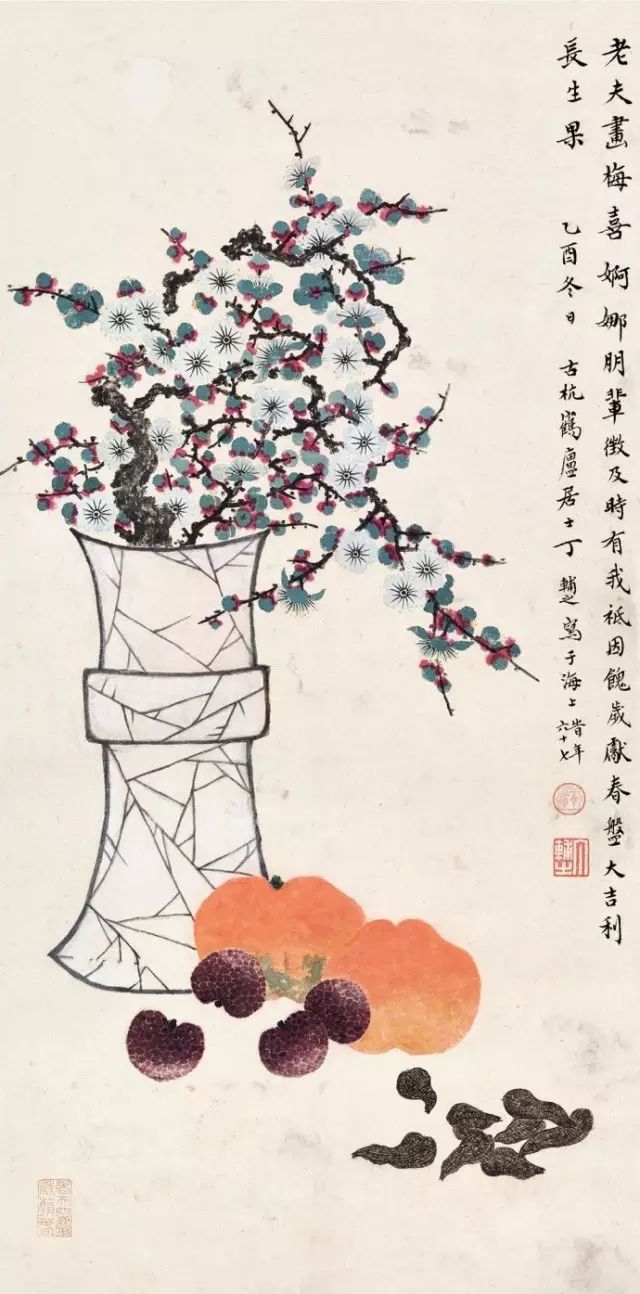 老夫畫梅喜婀娜朋輩徵及時有我祗因餽歲獻春盤大吉利
長生果 乙酉冬日 古杭鶴廬居士丁輔之寫于海上旹年六十七